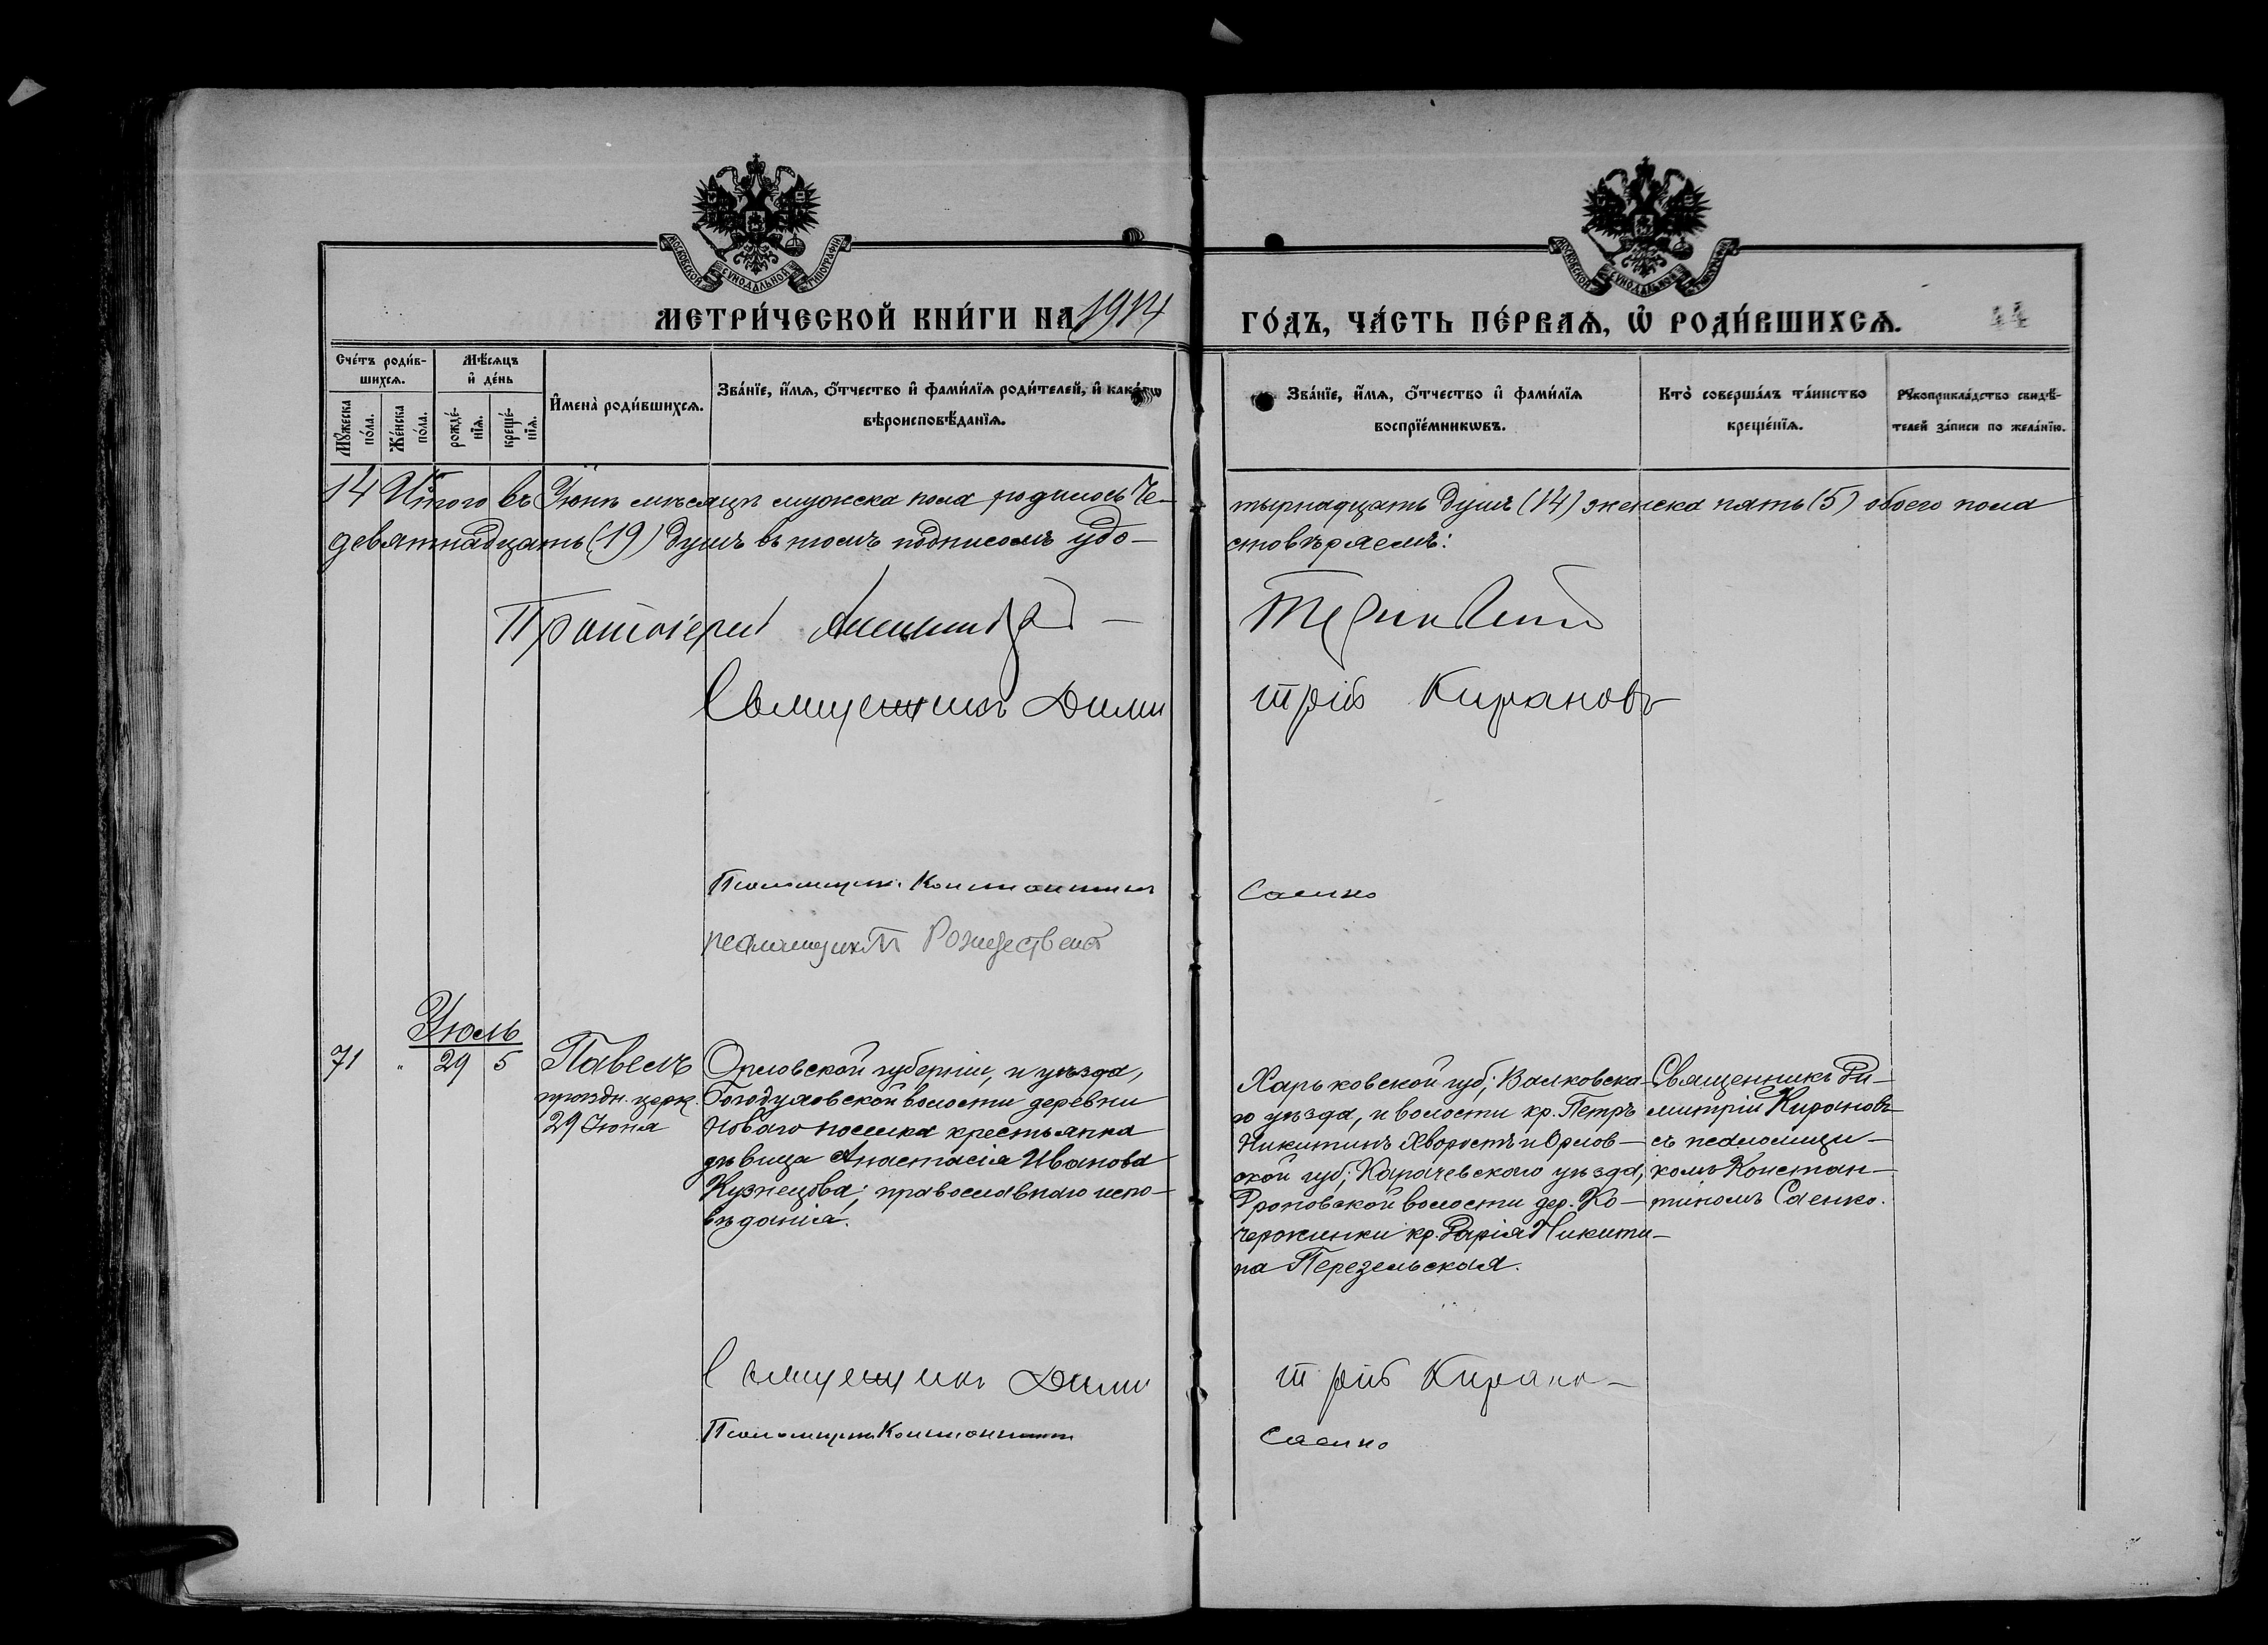 МОСКОВСКОЙ СѴНОДАЛЬНОЙ ТИПОГРАФІИ
МОСКОВСКОЙ СѴНОДАЛЬНОЙ ТИПОГРАФІИ
МЕТРИ́ЧЕСКОЙ КНИ́ГИ НА 1914
ГО́ДЪ, ЧА́СТЬ ПЕ́РВАѦ, Ѡ҆ РОДИ́ВШИХСѦ.
44
Сче́тъ роди́в-
шихсѧ.
Мꙋ́жеска
по́ла.
Же́нска
по́ла.
Мѣ́сѧцъ
и҆ де́нь
рожде́-
нїѧ.
креще́-
нїѧ.
И҆мена̀ роди́вшихсѧ.
Зва́нїе, и҆́мѧ, ѻ҆́тчество и҆ фами́лїѧ роди́телей, и҆ како́гѡ
вѣроисповѣ́данїѧ.
Зва́нїе, и҆́мѧ, ѻ҆́тчество и҆ фами́лїѧ
воспрїе́мникѡвъ.
Кто̀ соверша́лъ та́инство
креще́нїѧ.
Рꙋкоприкла́дство свидѣ́-
телей за́писи по жела́нїю.
14 Итого въ Іюнѣ мѣсяцѣ мужска пола родилось че-
тырнадцать душъ (14) женска пять (5) обоего пола
девятнадцать (19) душъ въ томъ подписомъ удо-
стовѣряемъ:
Протоіерей
Священникъ Дими
трій Кирановъ
Псаломщикъ Константинъ
Саенко
псаломщикъ Рождествен
Іюль
71 " 29 5 Павелъ
праздн. церк.
29 Іюня
Орловской губерніи, и уѣзда,
Богодуховской волости деревни
Новаго поселка крестьянка
дѣвица Анастасія Иванова
Кузнецова; православнаго испо-
вѣданія.
Харьковской губ; Валковска-
го уѣзда, и волости кр. Петръ
Никитинъ Хворостъ и Орлов-
ской губ; Карачевскаго уѣзда,
Дроновской волости дер. Ко-
черожинки кр. Дарія Никити-
на Перезельская.
Священникъ Ди-
митрій Кирановъ
съ псаломщи-
комъ Констан-
тиномъ Саенко.
Священникъ Дими
трій Кирано
Псаломщикъ Константинъ
Саенко